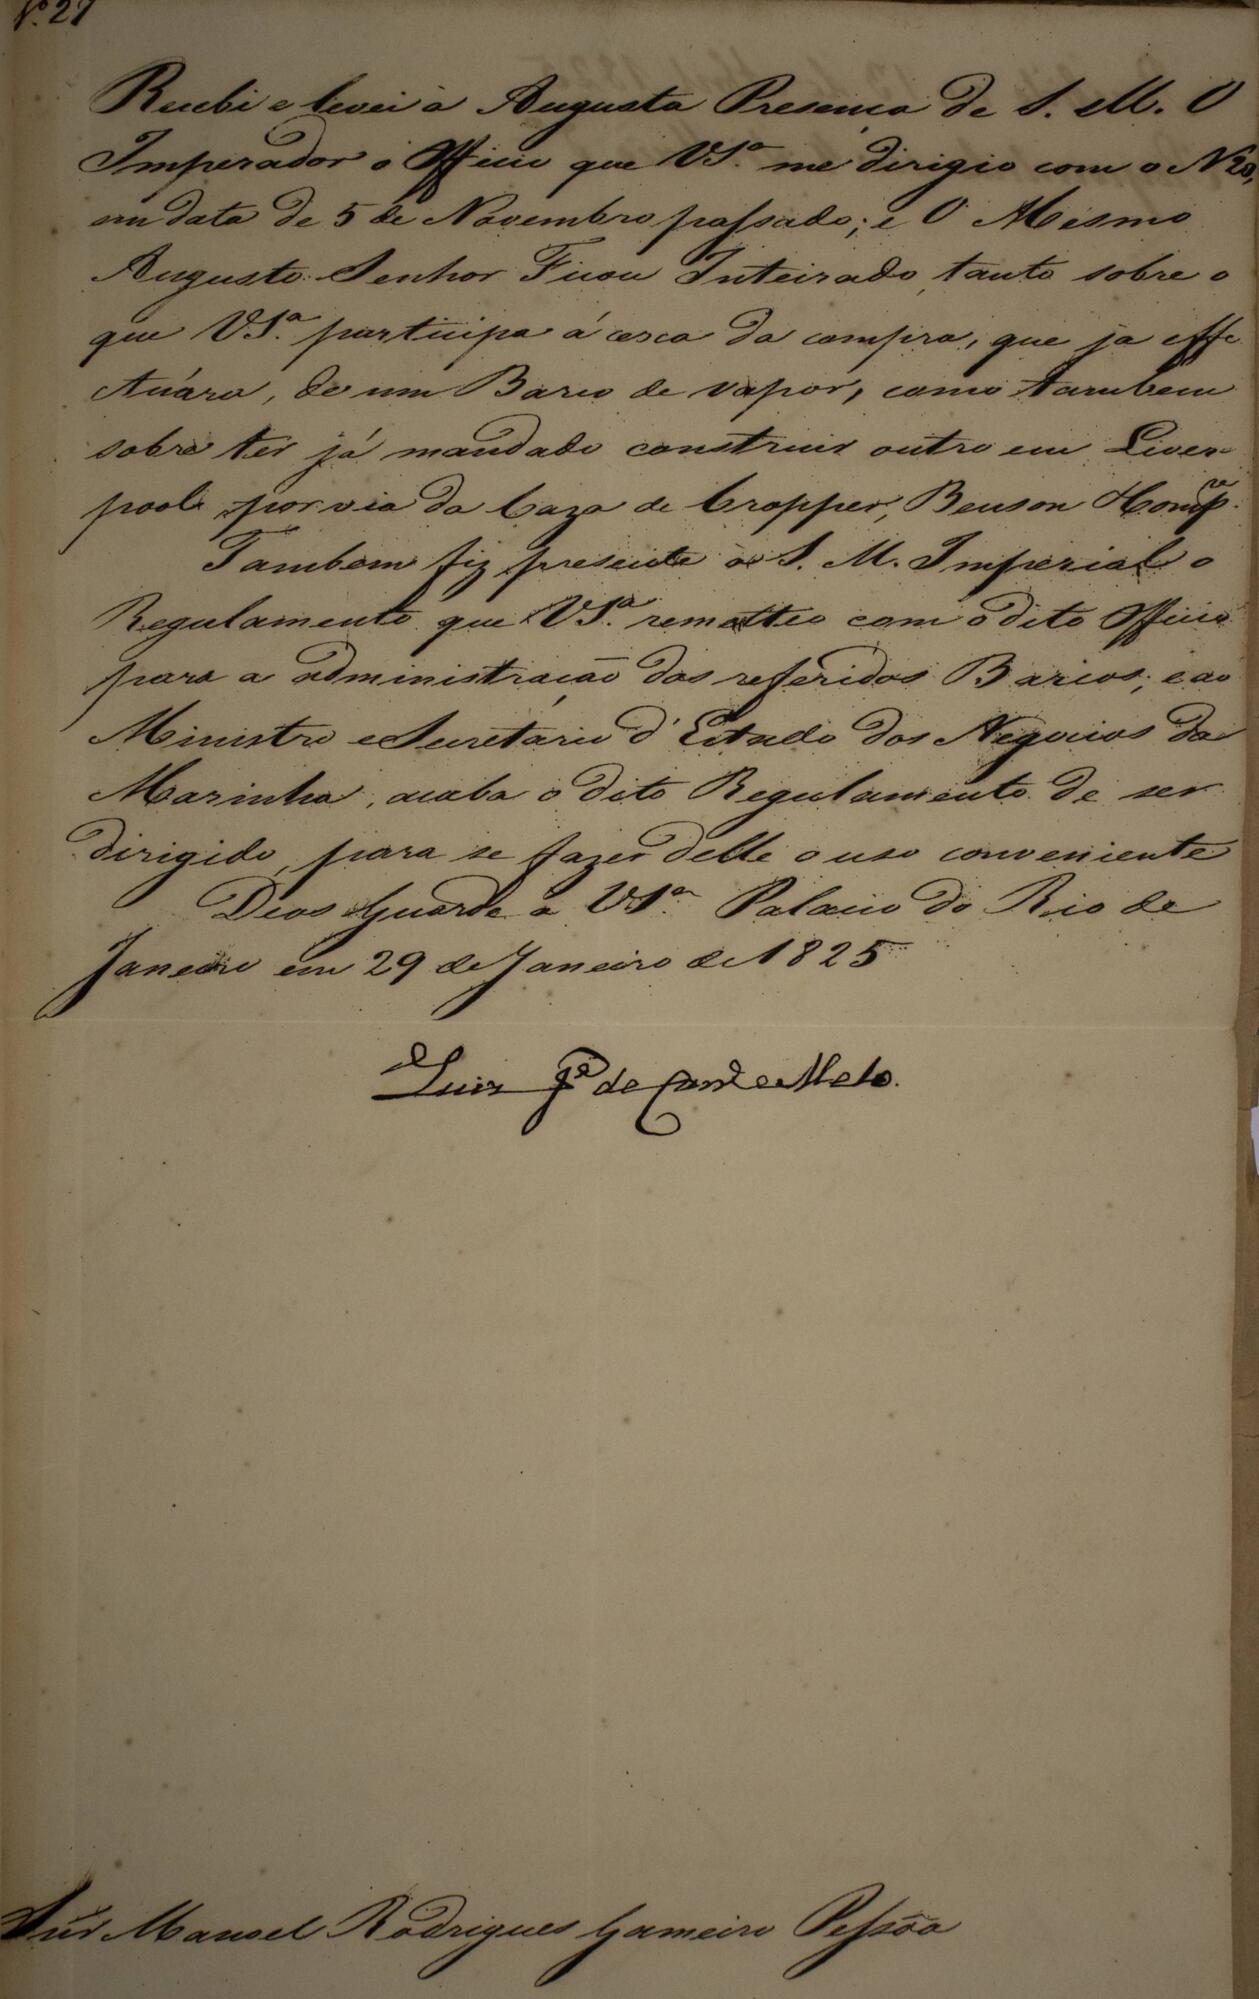 Nº. 27
Recebi e levei á Augusta Presença de S. M. O
Imperador o Officio que VSª. me dirigio com o N 20,
em data de 5 de Novembro passado; e O Mesmo
Augusto Senhor Ficou Inteirado, tanto sobre o
que VSª. participa á cerca da compra, que ja effe
ctuára, de um Barco de vapor, como tambem
sobre ter já mandado construir outro em Liver-
pool por via da Caza de Cropper, Benson & Compª.
Tambem fiz presente a S. M. Imperial o
Regulamento que VSª. remetteo com o dito Officio
para a administração dos referidos Barcos; e ao
Ministro e Secretario d'Estado dos Negocios da
Marinha, acaba o dito Regulamento de ser
dirigido, para se fazer delle o uso conveniente
Deos Guarde a VSª. Palacio do Rio de
Janeiro em 29 de Janeiro de 1825
Luiz Jº de Carvº e Mello.
Snr Manoel Rodrigues Gameiro Pessôa